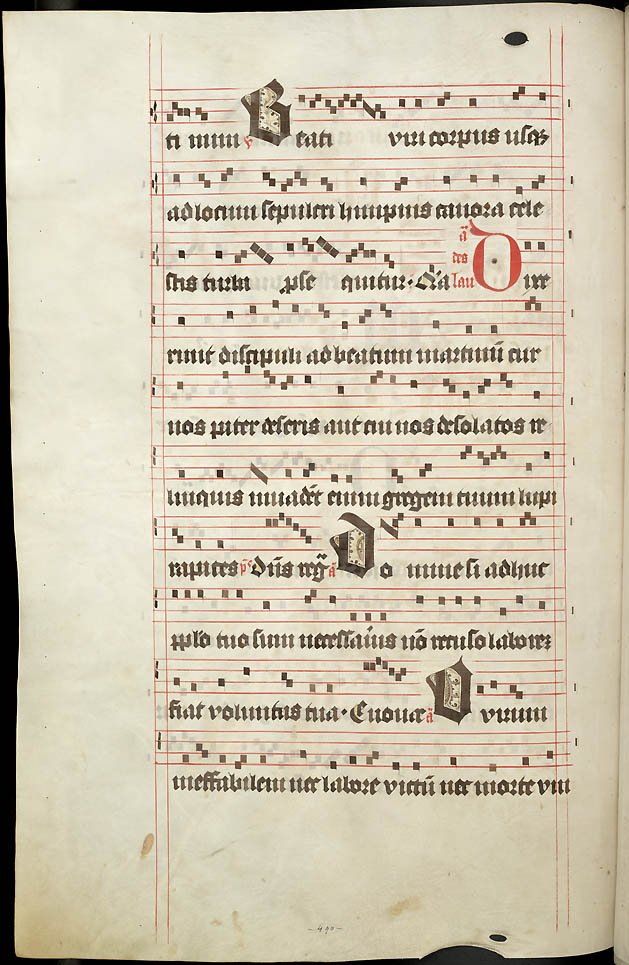 ti mum ℣ Beati viri corpus usqȝ
ad locum sepulcri hympnis canora cele
stis turba pse quitur· Gl̄a lau des ã Dixe
runt discipuli ad beatum martinū cur
nos pater deseris aut cui nos desolatos re
linquis inuadēt enim gregem tuum lupi
rapaces p̄s Dn̄s reg̃ ã Do mine si adhuc
pplo tuo sum necessari9 nō recuso laborē
fiat voluntas tua· Euouae ã O virum
ineffabilem nec labore victū nec morte vin
-490-